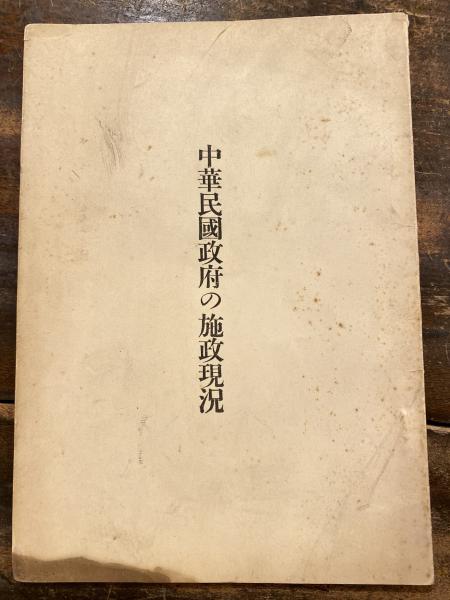 中華民國政府の施政現況